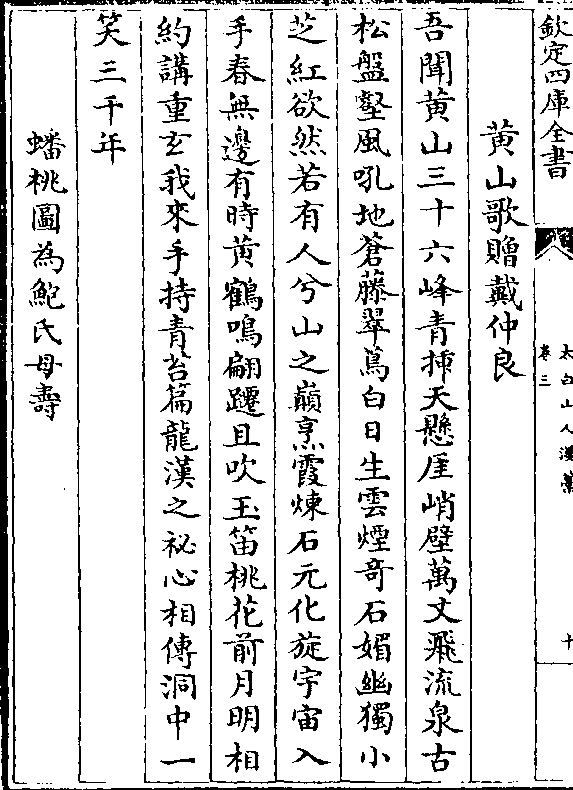 欽定四庫全書
太白山人漫藁
卷三
十
黄山歌贈戴仲良
吾聞黄山三十六峰青揷天懸厓峭壁萬丈飛流泉古
松盤壑風吼地蒼藤翠蔦白日生雲煙奇石媚幽獨小
芝紅欲然若有人兮山之巔烹霞煉石元化旋宇宙入
手春無邊有時黄鶴鳴翩躚且吹玉笛桃花前月明相
約講重玄我來手持青苔篇龍漢之祕心相傳洞中一
笑三千年
蟠桃圖為鮑氏母壽